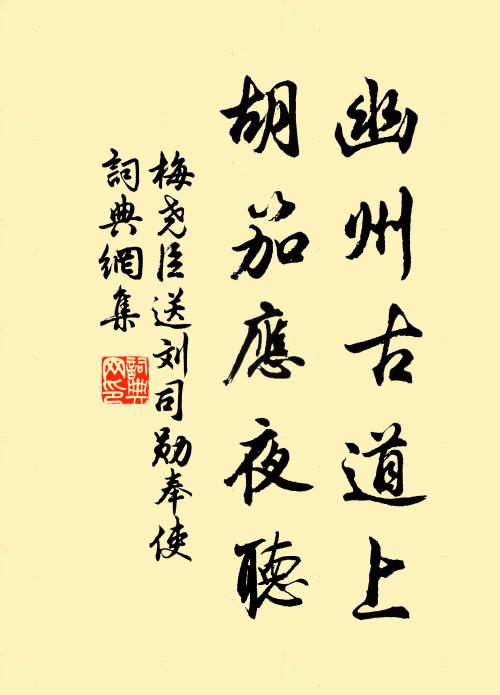 幽州古道上
胡笳應夜聽
梅尧臣送刘司勋奉使
詞典網集
詞典网印